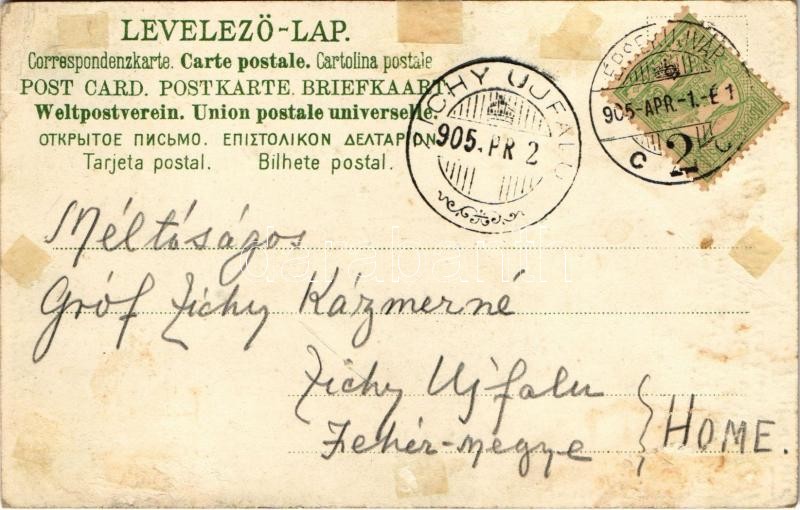 LEVELEZÖ-LAP.
Correspondenzkarte. Carte postale. Cartolina postale
POST CARD. POSTKARTE. BRIEFKAART
Weltpostverein. Union postale universelle.
ОТКРЫТОЕ ПИСЬМО. ΕΠΙΣΤΟΛΙΚΟΝ ΔΕΛΤΑΡΙΟΝ
Tarjeta postal. Bilhete postal.
ZICHY UJFALU
905.PR 2
ÉRSEKUJVÁR
905-APR.-1.-E1
C 2 C
Méltóságos
Gróf Zichy Kázmerné
Zichy Ujfalu
Fehér-megye } HOME.
darabanth